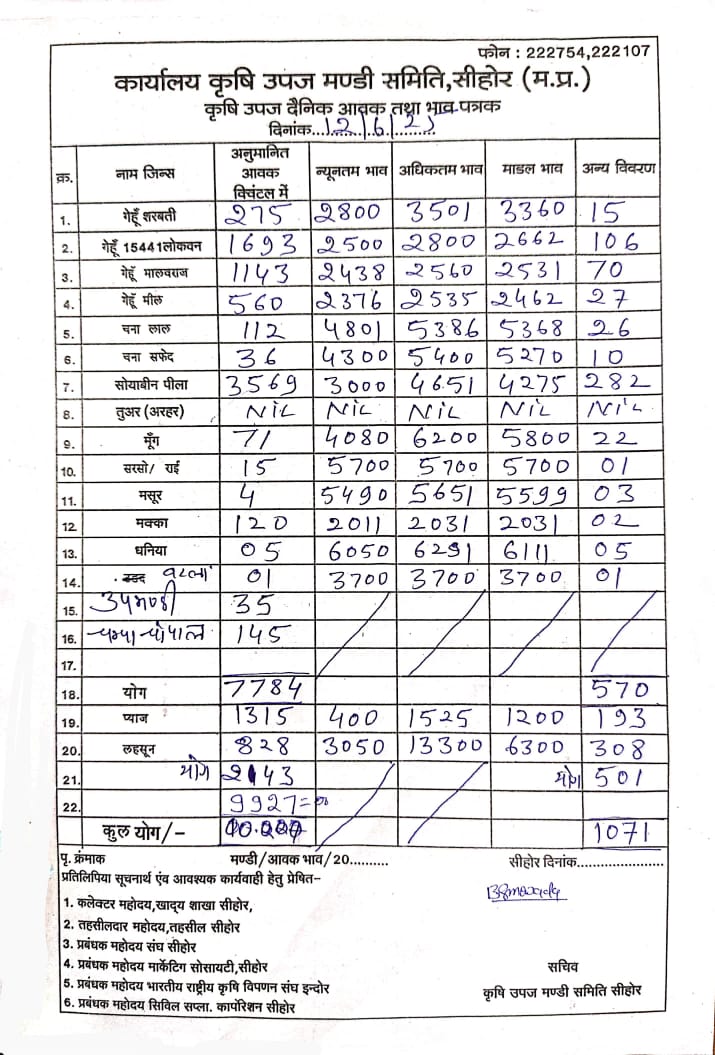 फोन : 222754,222107
कार्यालय कृषि उपज मण्डी समिति,सीहोर (म.प्र.)
कृषि उपज दैनिक आवक तथा भाव-पत्रक
दिनांक...12/6/25..........
क्र. नाम जिन्स अनुमानित आवक क्विंटल में न्यूनतम भाव अधिकतम भाव माडल भाव अन्य विवरण
1. गेहूँ शरबती 275 2800 3501 3360 15
2. गेहूँ 15441लोकवन 1693 2500 2800 2662 106
3. गेहूँ मालवराज 1143 2438 2560 2531 70
4. गेहूँ मील 560 2376 2535 2462 27
5. चना लाल 112 4801 5386 5368 26
6. चना सफेद 36 4300 5400 5270 10
7. सोयाबीन पीला 3569 3000 4651 4275 282
8. तुअर (अरहर) NIL NIL NIL NIL NIL
9. मूँग 71 4080 6200 5800 22
10. सरसो/ राई 15 5700 5700 5700 01
11. मसूर 4 5490 5651 5599 03
12. मक्का 120 2011 2031 2031 02
13. धनिया 05 6050 6291 6111 05
14. बटला 01 3700 3700 3700 01
15. उपमण्डी 35
16. 145
17.
18. योग 7784 570
19. प्याज 1315 400 1525 1200 193
20. लहसून 828 3050 13300 6300 308
21. योग 2143 योग 501
22. 9927=00
कुल योग/- 1071
पृ.क्रंमाक मण्डी/आवक भाव/20.......... सीहोर दिनांक......................
प्रतिलिपिया सूचनार्थ एंव आवश्यक कार्यवाही हेतु प्रेषित-
1. कलेक्टर महोदय,खाद्य शाखा सीहोर,
2. तहसीलदार महोदय,तहसील सीहोर
3. प्रबंधक महोदय संघ सीहोर
4. प्रबंधक महोदय मार्केटिग सोसायटी,सीहोर सचिव
5. प्रबंधक महोदय भारतीय राष्ट्रीय कृषि विपणन संघ इन्दोर कृषि उपज मण्डी समिति सीहोर
6. प्रबंधक महोदय सिविल सप्ला. कार्पोरेशन सीहोर